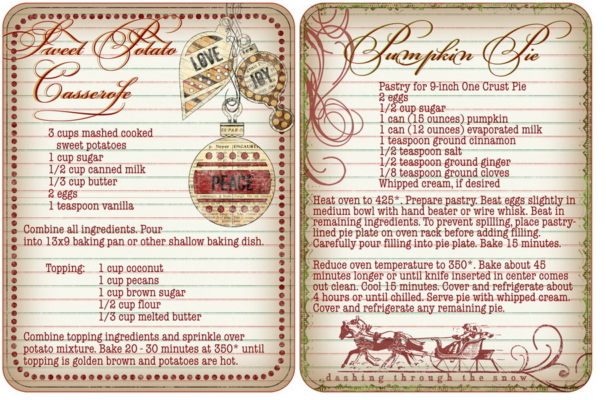 Sweet Potato
Casserole
LOVE
JOY
PEACE
3 cups mashed cooked
sweet potatoes
1 cup sugar
1/2 cup canned milk
1/3 cup butter
2 eggs
1 teaspoon vanilla
Combine all ingredients. Pour
into 13x9 baking pan or other shallow baking dish.
Topping: 1 cup coconut
1 cup pecans
1 cup brown sugar
1/2 cup flour
1/3 cup melted butter
Combine topping ingredients and sprinkle over
potato mixture. Bake 20 - 30 minutes at 350* until
topping is golden brown and potatoes are hot.
Pumpkin Pie
Pastry for 9-inch One Crust Pie
2 eggs
1/2 cup sugar
1 can (15 ounces) pumpkin
1 can (12 ounces) evaporated milk
1 teaspoon ground cinnamon
1/2 teaspoon salt
1/2 teaspoon ground ginger
1/8 teaspoon ground cloves
Whipped cream, if desired
Heat oven to 425*. Prepare pastry. Beat eggs slightly in
medium bowl with hand beater or wire whisk. Beat in
remaining ingredients. To prevent spilling, place pastry-
lined pie plate on oven rack before adding filling.
Carefully pour filling into pie plate. Bake 15 minutes.
Reduce oven temperature to 350*. Bake about 45
minutes longer or until knife inserted in center comes
out clean. Cool 15 minutes. Cover and refrigerate about
4 hours or until chilled. Serve pie with whipped cream.
Cover and refrigerate any remaining pie.
dashing through the snow